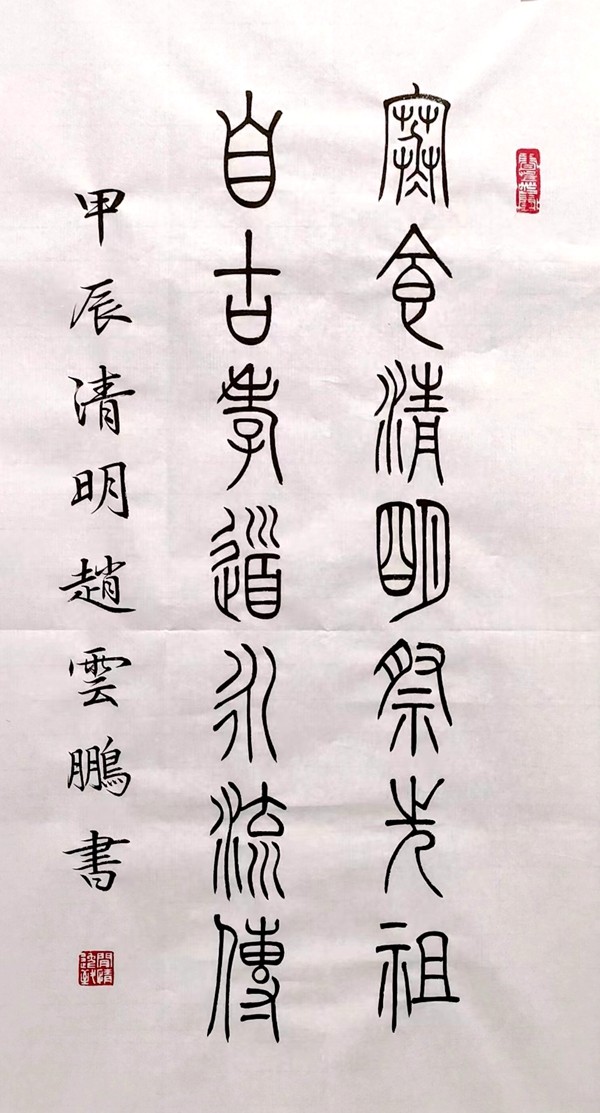 寒食清明祭先祖
自古孝道永流傳
甲辰清明趙雲鵬書